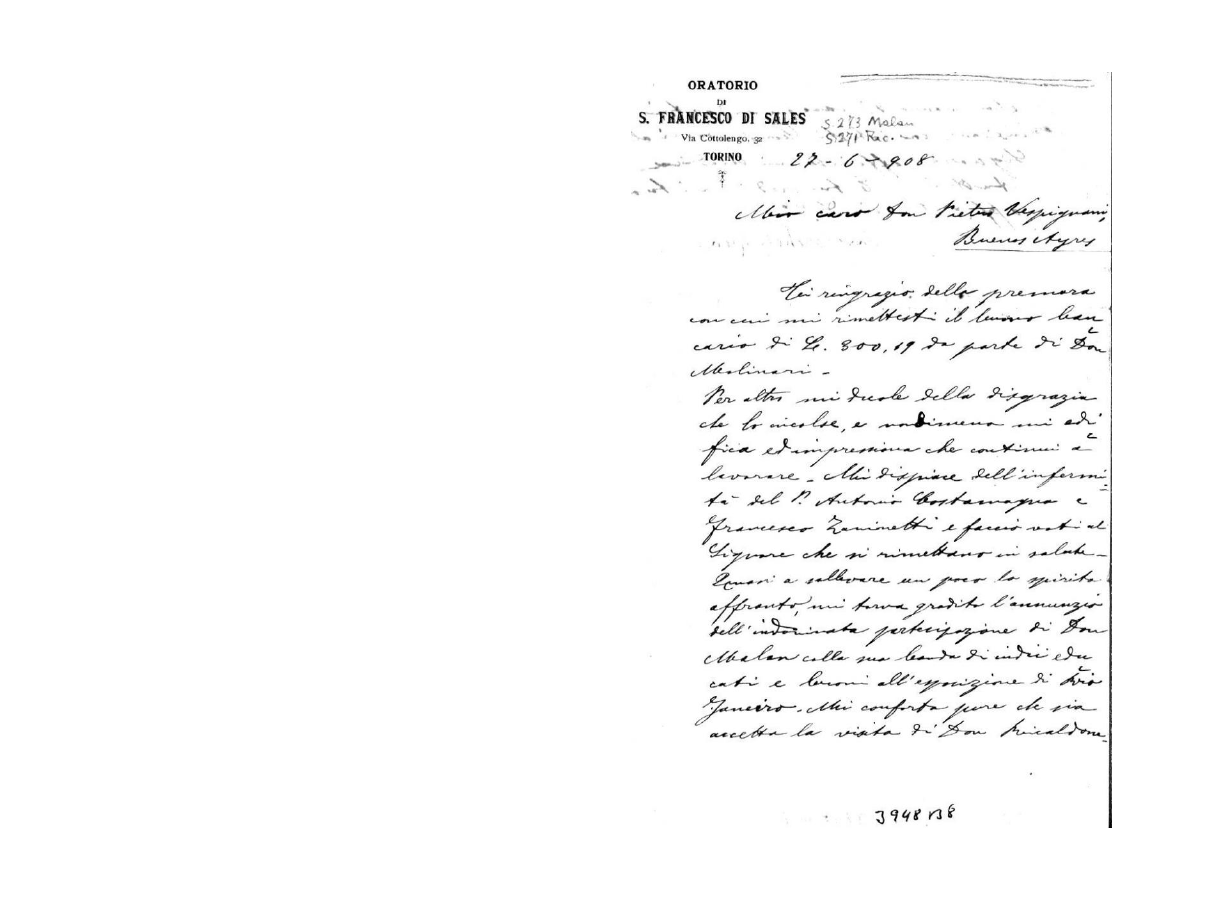 ORATORIO
DI
S. FRANCESCO DI SALES
Via Cottolengo, 32
TORINO
S 273 Malan
S 271 Ric.
27-6-908
Mio caro Don Pietro Vespignani,
Buenos Ayres
Ti ringrazio della premura
con cui mi rimettesti il buono ban
cario di L. 800,19 da parte di Don
Molinari -
Per altro mi duole della disgrazia
che lo incolse, e nondimeno mi edi
fica ed impressiona che continui a
lavorare - Mi dispiace dell'infermi
tà del P. Antonio Costamagna e
Francesco Zaninetti e faccio voti al
Signore che si rimettano in salute -
Quasi a sollevare un poco lo spirito
affranto, mi torna gradito l'annunzio
dell'indovinata partecipazione di Don
Malan colla sua banda di indii edu
cati e buoni all'esposizione di Rio
Janeiro. Mi conforta pure che sia
accetta la visita di Don Ricaldone
3948 B8